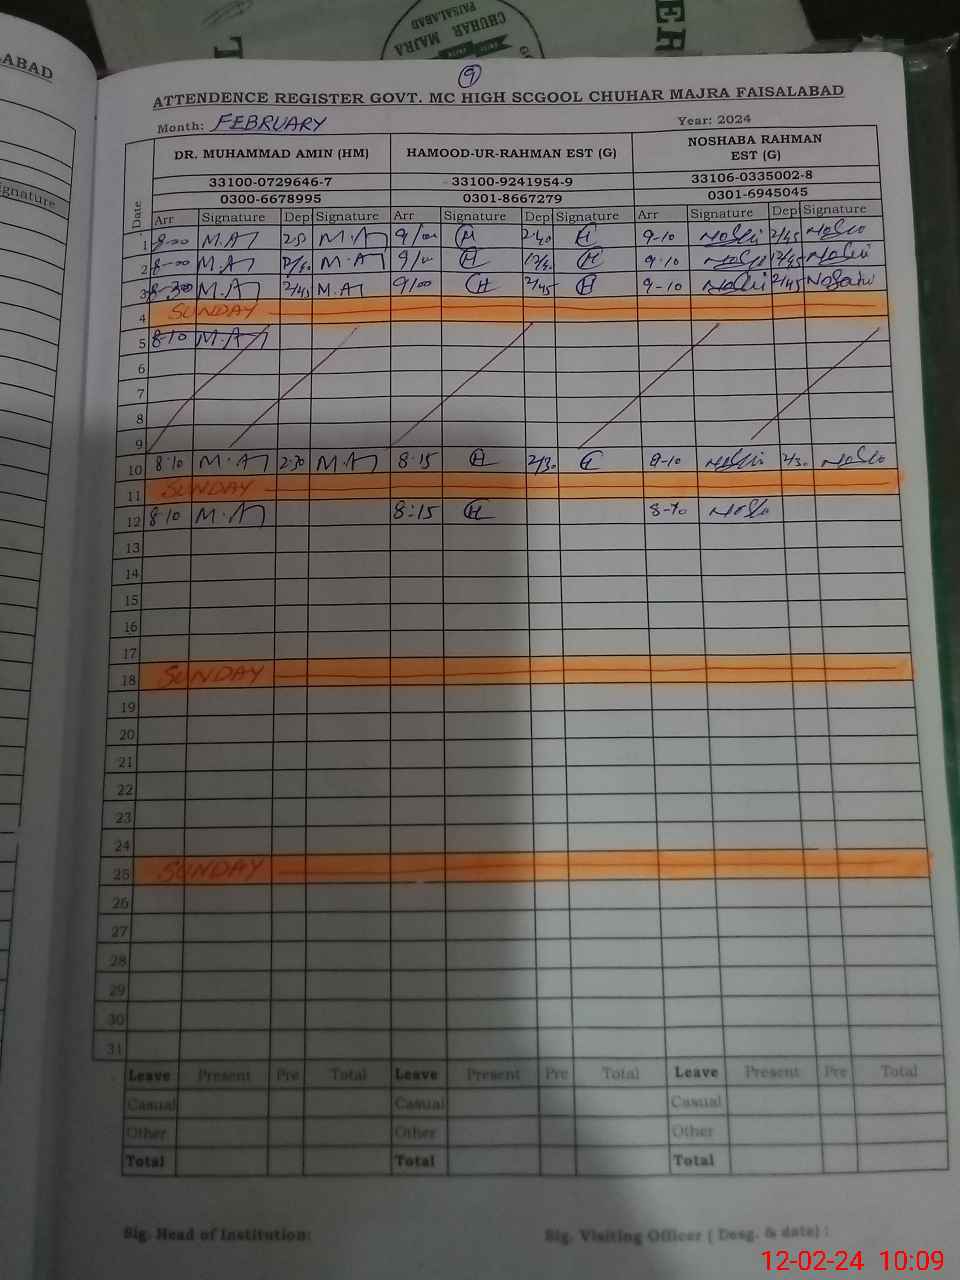 ER
T
CHUHAR MAJRA
FAISALABAD
ABAD
gnature
9
ATTENDENCE REGISTER GOVT. MC HIGH SCGOOL CHUHAR MAJRA FAISALABAD
Month: FEBRUARY Year: 2024
DR. MUHAMMAD AMIN (HM) HAMOOD-UR-RAHMAN EST (G) NOSHABA RAHMAN EST (G)
33100-0729646-7 33100-9241954-9 33106-0335002-8
0300-6678995 0301-8667279 0301-6945045
Date Arr Signature Dep Signature Arr Signature Dep Signature Arr Signature Dep Signature
1 8-00 M.A M.A 9/00 H 2-40 H 9-10 2/45
2 8-00 M.A 12/40 M.A 9/00 H 12/40 H 9-10 12/45
3 8-00 M.A 2/45 M.A 9/00 H 2/45 H 9-10 2/45
4 SUNDAY
5 8-10 M.A
6
7
8
9
10 8-10 M.A 2-30 M.A 8-15 H 2/30 H 8-10 2/30
11 SUNDAY
12 8-10 M.A 8:15 H 8-10
13
14
15
16
17
18 SUNDAY
19
20
21
22
23
24
25 SUNDAY
26
27
28
29
30
31
Leave Present Pre Total Leave Present Pre Total Leave Present Pre Total
Casual Casual Casual
Other Other Other
Total Total Total
Sig. Head of Institution: Sig. Visiting Officer ( Desg. & date) :
12-02-24 10:09